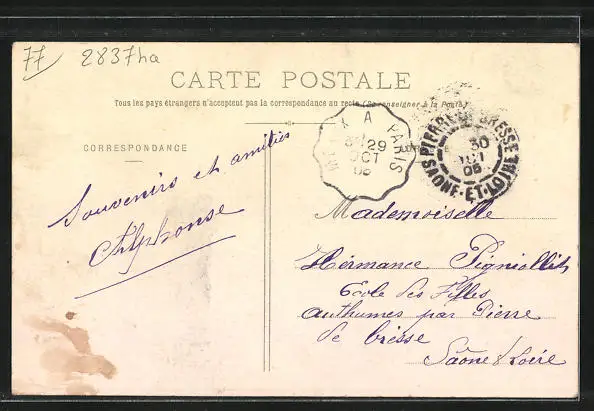 77
2837ha
CARTE POSTALE
Tous les pays étrangers n'acceptent pas la correspondance au recto (Se renseigner à la Poste)
CORRESPONDANCE
A PARIS
29
OCT
05
PIERRE BRESSE
30
OCT
05
SAONE-ET-LOIRE
Souvenirs et amitiés
Alphonse
Mademoiselle
Hermance Pigniollet
Ecole des Filles
Authumes par Pierre
de bresse
Saône & Loire